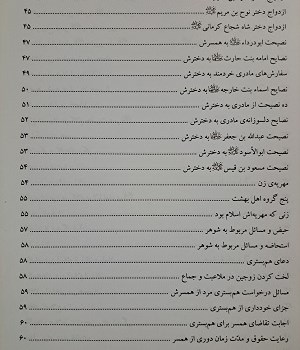 ازدواج دختر نوح بن مریم ﷺ ۴۵
ازدواج دختر شاه شجاع کرمانی ﷺ ۴۵
نصیحت ابودرداء ﷺ به همسرش ۴۷
نصایح امامه بنت حارث ﷺ به دخترش ۴۷
سفارش‌های مادری خردمند به دخترش ۴۹
نصایح اسماء بنت خارجه ﷺ به دخترش ۵۰
ده نصیحت از مادری به دخترش ۵۱
نصایح دلسوزانه‌ی مادری به دخترش ۵۲
نصیحت عبدالله بن جعفر ﷺ به دخترش ۵۳
نصیحت ابوالأسود ﷺ به دخترش ۵۳
نصیحت مسعود بن قیس ﷺ به دخترش ۵۴
مهریه‌ی زن ۵۴
پنج گروه اهل بهشت ۵۵
زنی که مهریه‌اش اسلام بود ۵۵
حیض و مسائل مربوط به شوهر ۵۷
استحاضه و مسائل مربوط به شوهر ۵۸
دعای هم‌بستری ۵۸
لخت کردن زوجین در ملاعبت و جماع ۵۸
مسائل درخواست هم‌بستری مرد از همسرش ۵۹
جزای خودداری از هم‌بستری ۵۹
اجابت تقاضای همسر برای هم‌بستری ۶۰
رعایت حقوق و مدّت زمان دوری از همسر ۶۰